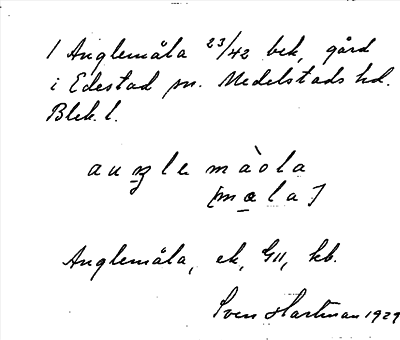 1 Anglemåla 23/42 bek, gård
i Edestad sn. Medelstads hd.
Blek. l.
auŋle màola
[mæla]
Anglemåla, ek, GII, kb.
Sven Hartman 1929